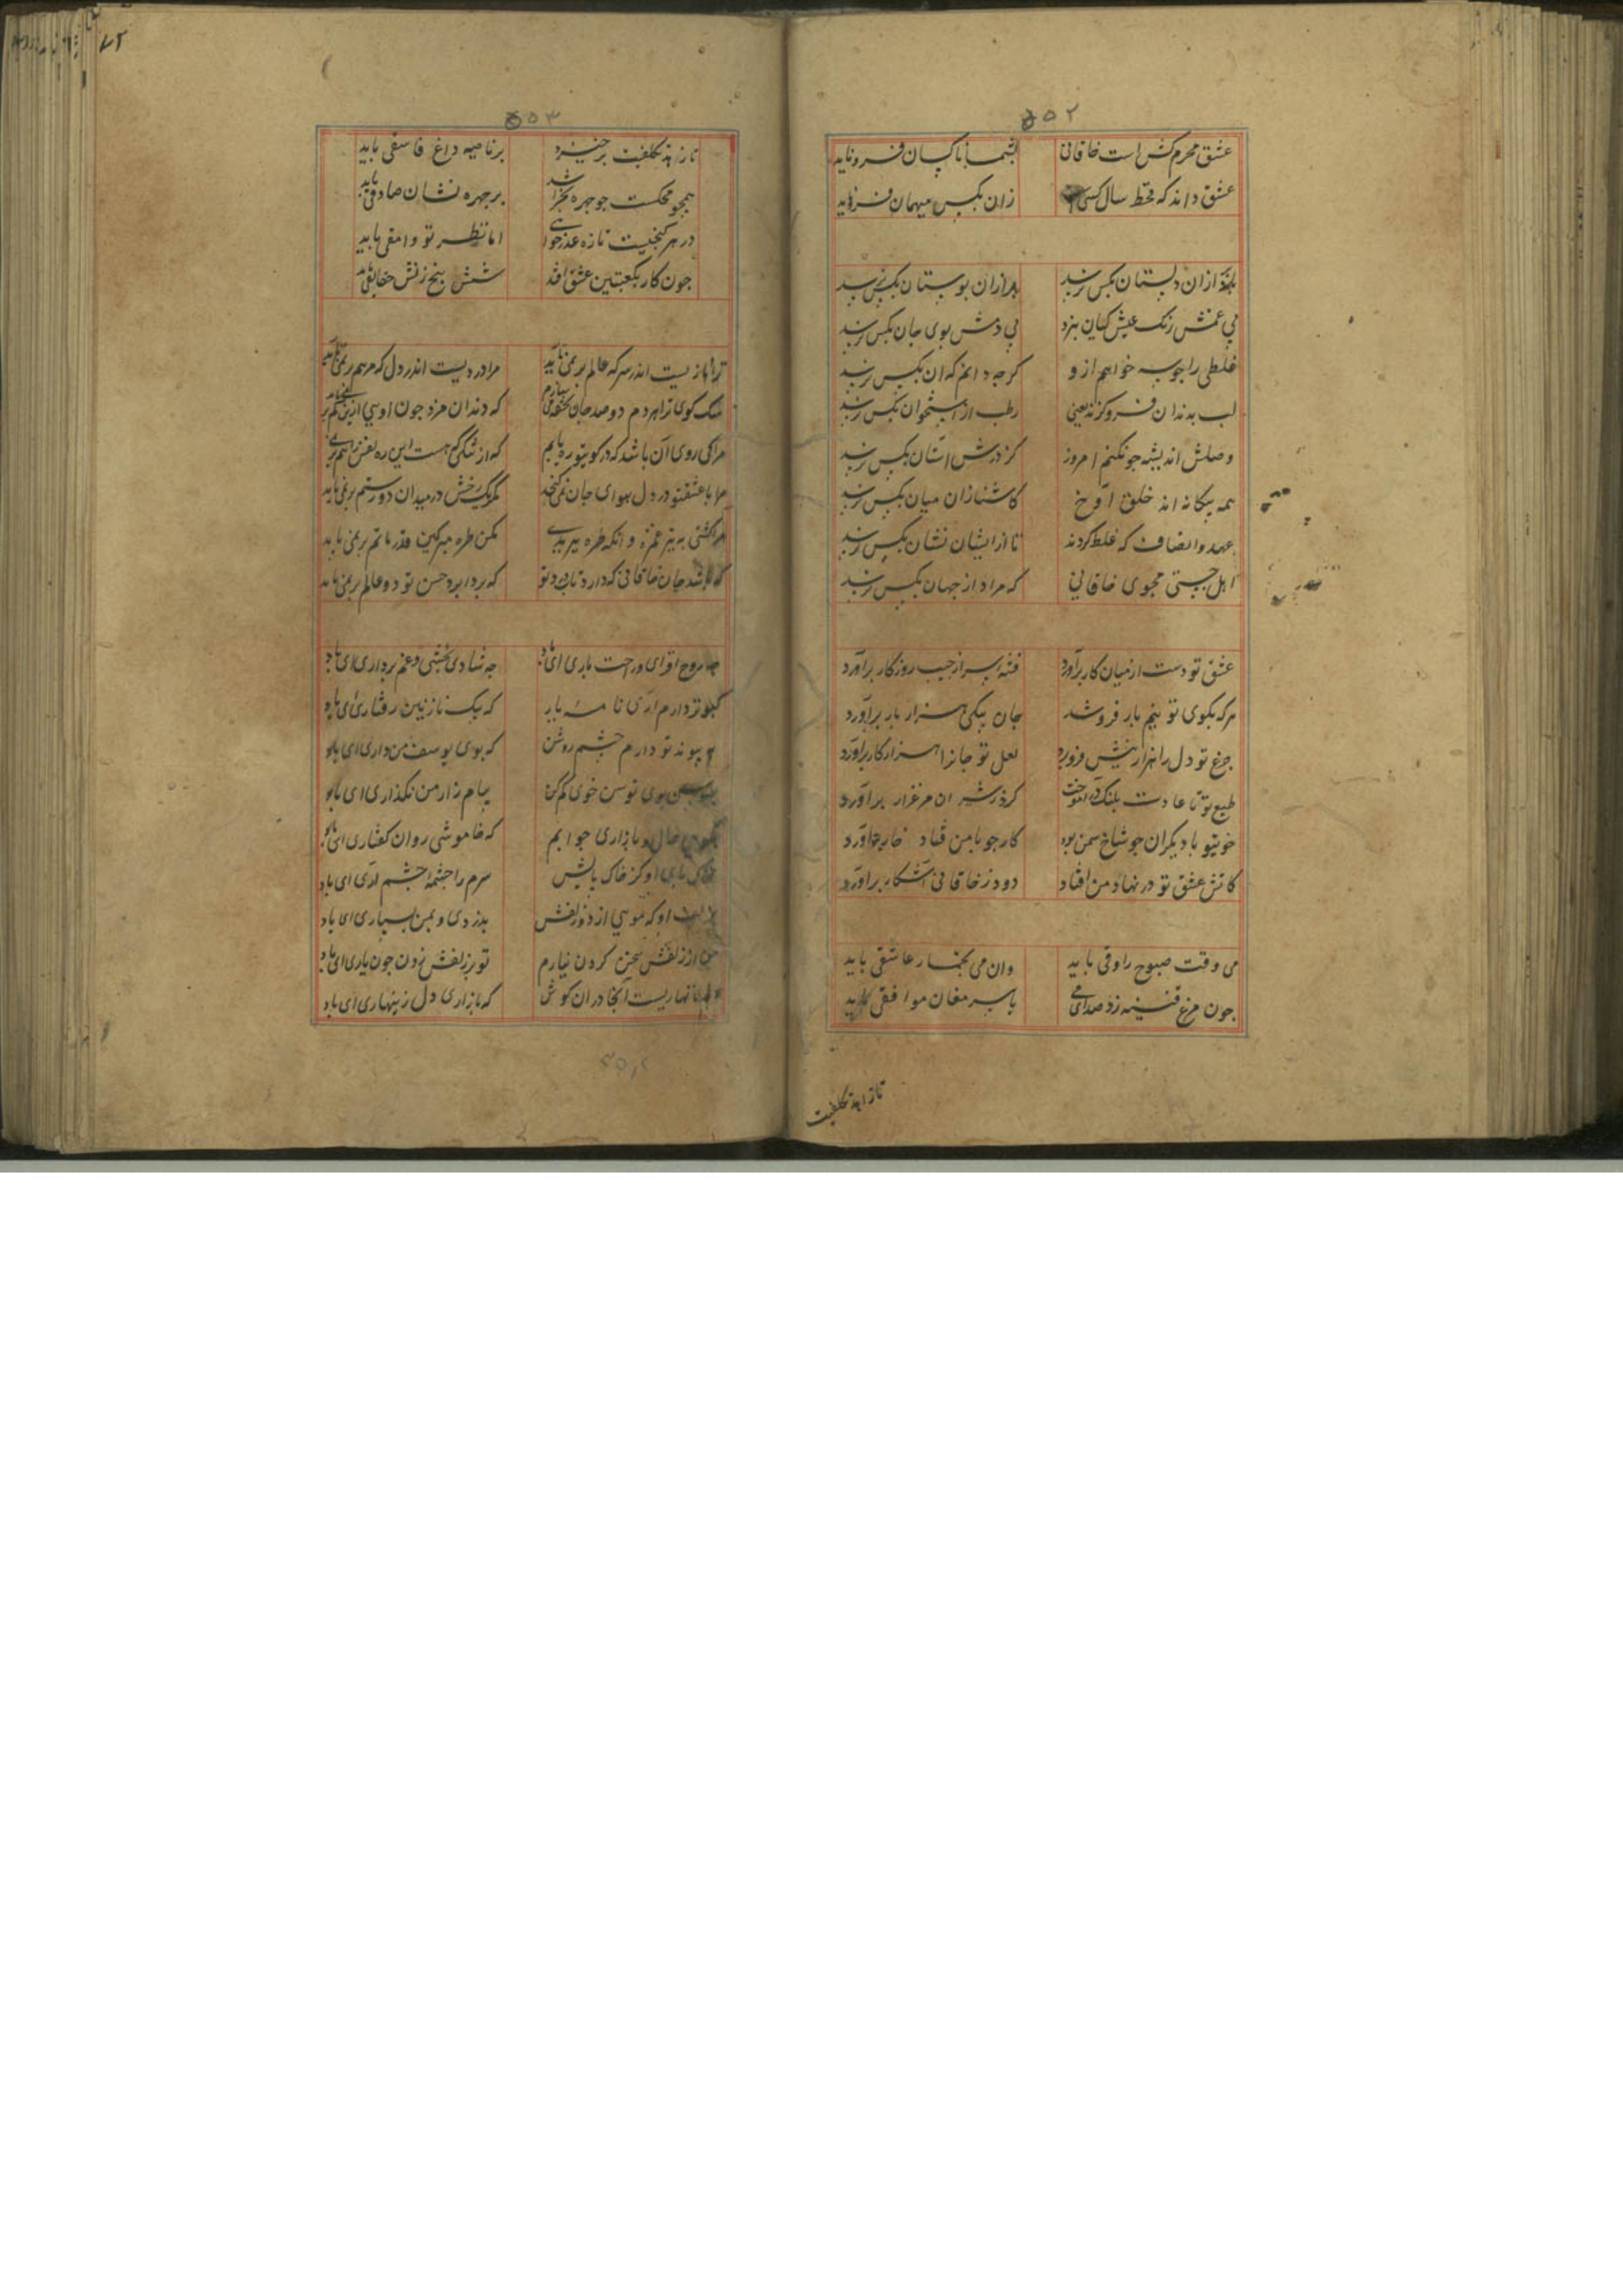 ۵۰۲
عشق محرم کش است خاقانی بشما ناکسان فرو ناید
عشق داند که قحط سال کسی زان بکس میهمان فرو ناید
ازان دلستان بکس نرسد برازان بوستان بکس نرسد
بی غمش رنک عیش کس نبرد بی دمش بوی جان بکس نرسد
غلطی را جوبه خواهم ازو کرجه دانم که ان بکس نرسد
لب بدندان فرو کزند یعنی رطب از استخوان بکس نرسد
وصلش اندیشه جونکنم امروز کز درش استان بکس نرسد
همه بیکانه اند خلق آوخ کاشنا زان میان بکس نرسد
عهد و انصاف که غلط کردند تا از ایشان نشان بکس نرسد
اهل جستی مجوی خاقانی که مراد از جهان بکس نرسد
عشق تو دست از میان کار برآورد فتنه سر از جیب روزکار برآورد
هرکه بکوی تو نیم بار فروشد جان بیکی هزار بار برآورد
جزع تو دل را هزار نیش فروبرد لعل تو جانرا هزار کار برآورد
طبع تو تا عادت بلنک درآموخت کرد ز شیران مرغزار برآورد
خوی تو با دیکران جو شاخ سمن بود کار جو با من فتاد خار برآورد
کاتش عشق تو در نهاد من افتاد دود ز خاقانی آشکار برآورد
می وقت صبوح راوقی باید وان می بخمار عاشقی باید
جون مرغ قنینه زد صدای می با پیر مغان موافقی باید
تا زاهد تکلفیت
۵۰۳
تا زاهد تکلفیت برخیزد برناصیه داغ فاسقی باید
همجو محکست جو جهره بخراشد برجهره نشان صادقی باید
در هر کنجیست تازه عذرایی اما نظر تو وامقی باید
جون کار بکعبتین عشق افتد شش پنج زنش حقایقی باید
ترا نازیست اندر سر که عالم برنمی تابد مرا دردیست اندر دل که مرهم برنمی تابد
سک کوی ترا هر دم دو صد جان تحفه می سازم که دندان مزد جون اویی ازین کم برنمی تابد
مرا کی روی آن باشد که در کوی تو ره یابم که از تنکی که هست این ره نفس را هم برنمی تابد
مرا با عشق تو در دل هوای جان نمی کنجد مکر یک رخش در میدان دو رستم برنمی تابد
مرا کشتی به تیر غمزه وانکه طره ببریدی مکن طره مبر کین قدر ماتم برنمی تابد
جان خاقانی که دارد تاب درد تو که بردابرد حسن تو دو عالم برنمی تابد
جه روح افزای و راحت باری ای باد جه شادی بخشی و غم برداری ای باد
کبوتر دارم آری نامه یار که پیک نازنین رفتاری ای باد
پیوند تو دارم جشم روشن که بوی یوسف من داری ای باد
بوی توسن خوی کم کن پیام زار من نکذاری ای باد
بازاری جوابم که خاموشی روان کفتاری ای باد
پای او کز خاک پایش سرم را جشمه جشم آری ای باد
او که مویی از دو زلفش بدزدی و بمن بسپاری ای باد
از زلفش سخن کردن نیارم تو بر زلفش زدن جون یاری ای باد
آنجا دران کوش که نازاری دل زینهاری ای باد